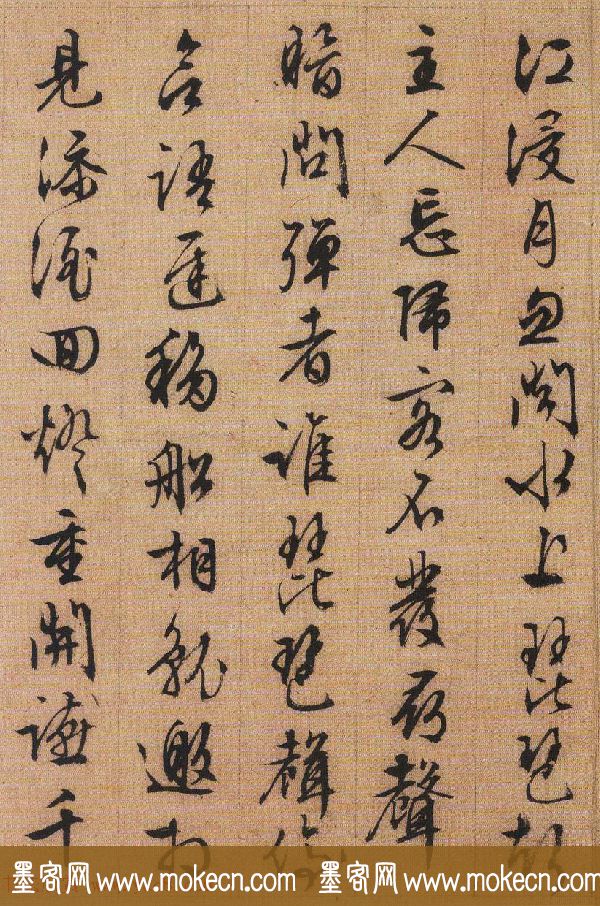 江浸月忽聞水上琵琶聲
主人忘歸客不發尋聲
暗問彈者誰琵琶聲停
欲語遲移船相就邀相
見添酒回燈重開讌千
墨客网 www.mokecn.com 墨客网 www.mokecn.com